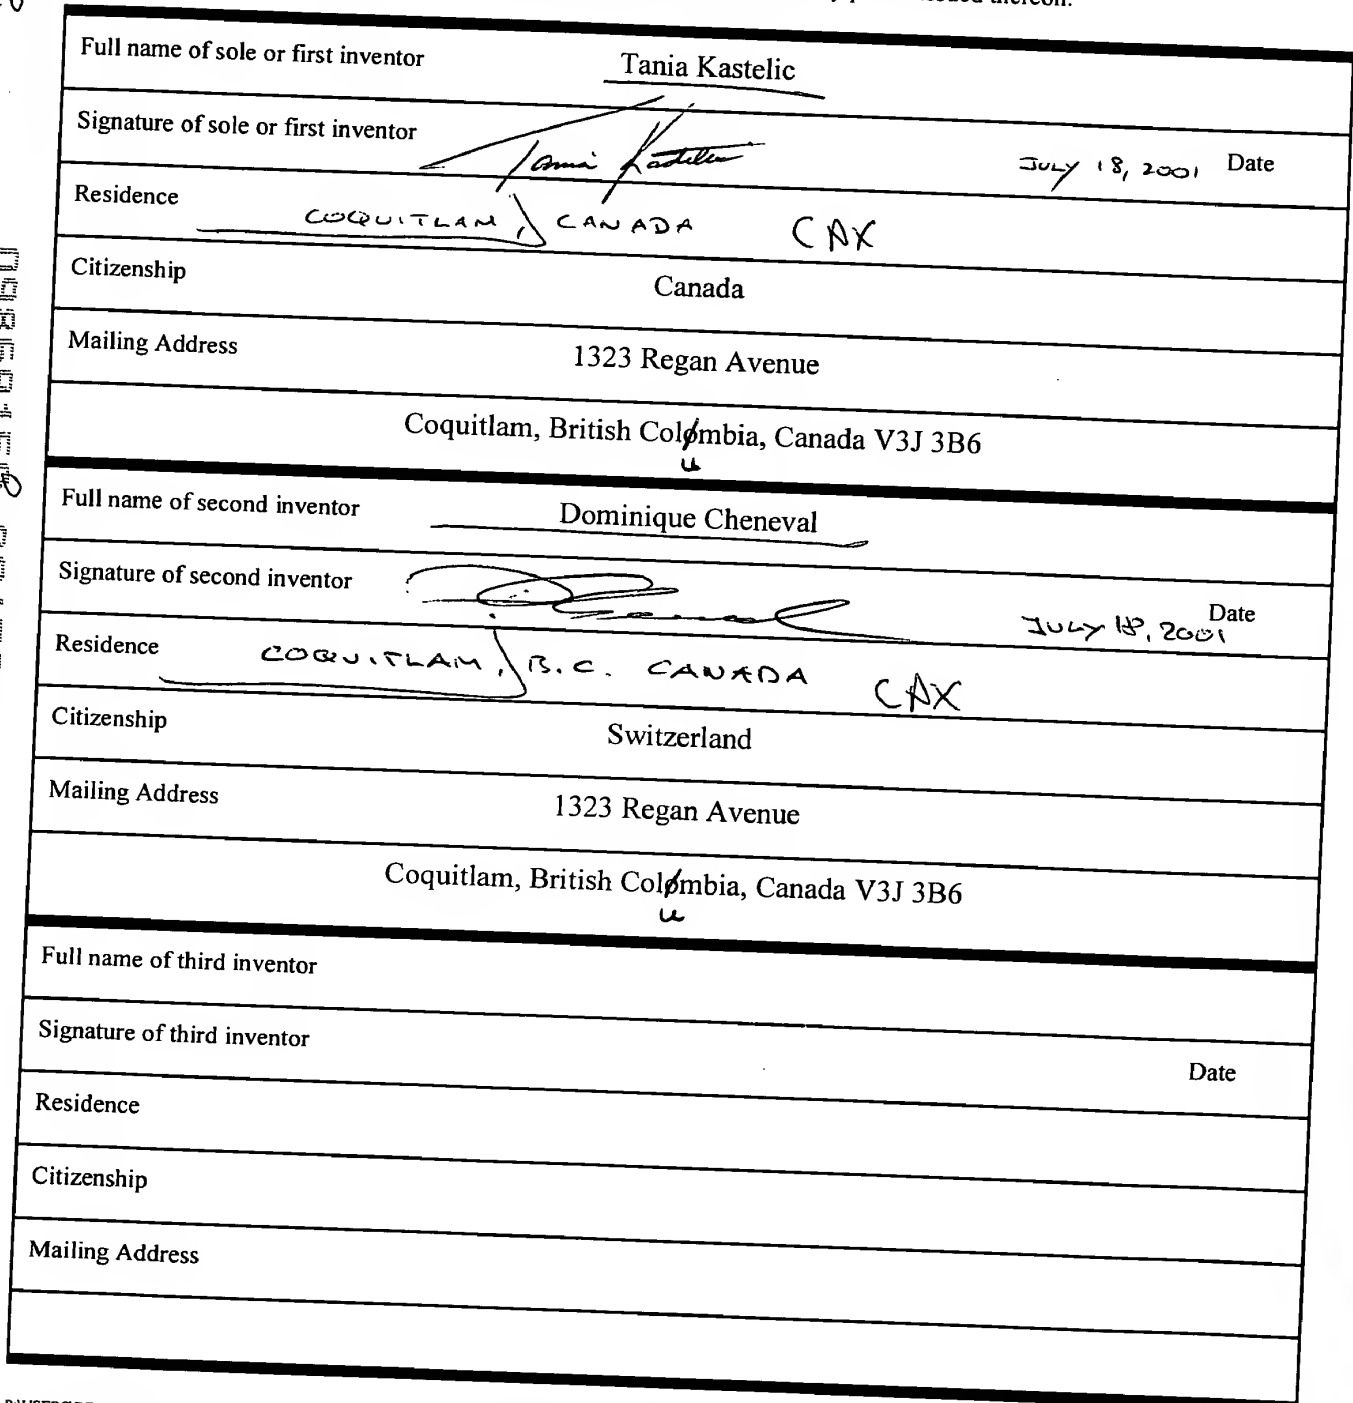 thereon.
Full name of sole or first inventor Tania Kastelic
Signature of sole or first inventor Tania Kastelic JULY 18, 2001 Date
Residence COQUITLAM, CANADA CAX
Citizenship Canada
Mailing Address 1323 Regan Avenue
Coquitlam, British Colombia, Canada V3J 3B6
u
Full name of second inventor Dominique Cheneval
Signature of second inventor JULY 18, 2001 Date
Residence COQUITLAM, B.C. CANADA CAX
Citizenship Switzerland
Mailing Address 1323 Regan Avenue
Coquitlam, British Colombia, Canada V3J 3B6
u
Full name of third inventor
Signature of third inventor Date
Residence
Citizenship
Mailing Address